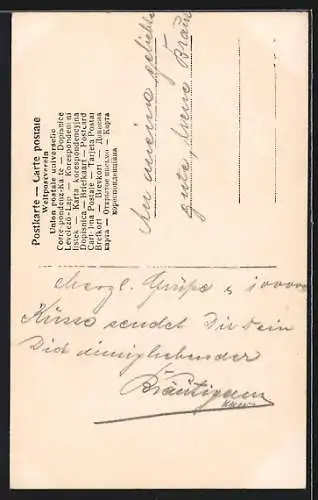 Postkarte — Carte postale
Weltpostverein
Union postale universelle
Correspondenz-Karte — Dopisnice
Levelező-Lap — Korespondenčni
listek — Karta korespondencyjna
Dopisnica — Briefkaart — Postcard
Cartolina Postale — Tarjeta Postal
Brefkort — Brevkort — Дописна
карта — Открытое письмо — Карта
корреспонденціина
An meine geliebte
gute, brave Braut
Herzl. Grüße & 100000
Küsse sendet Dir Dein
Dich innigliebender
Bräutigam